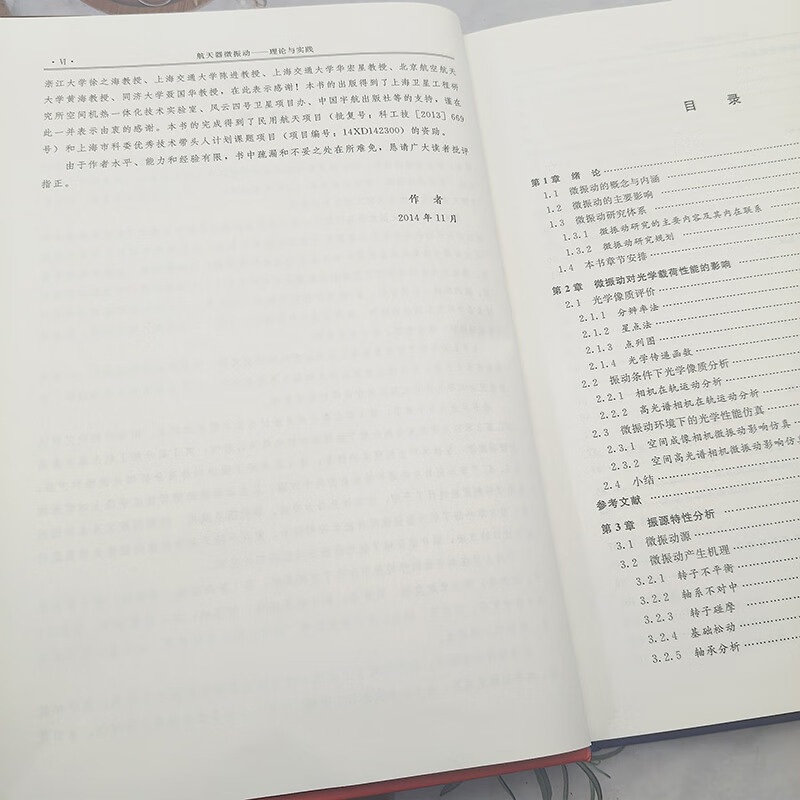 · Ⅵ ·
航天器微振动——理论与实践
浙江大学徐之海教授、上海交通大学陈进教授、上海交通大学华宏星教授、北京航空航天
大学黄海教授、同济大学聂国华教授，在此表示感谢！本书的出版得到了上海卫星工程研
究所空间机热一体化技术实验室、风云四号卫星项目办、中国宇航出版社等的支持，谨在
此一并表示由衷的感谢。本书的完成得到了民用航天项目（批复号：科工技［2013］669
号）和上海市科委优秀技术带头人计划课题项目（项目编号：14XD142300）的资助。
由于作者水平、能力和经验有限，书中疏漏和不妥之处在所难免，恳请广大读者批评
指正。
作 者
2014 年 11 月
目 录
第 1 章 绪 论
1.1 微振动的概念与内涵
1.2 微振动的主要影响
1.3 微振动研究体系
1.3.1 微振动研究的主要内容及其内在联系
1.3.2 微振动研究规划
1.4 本书章节安排
第 2 章 微振动对光学载荷性能的影响
2.1 光学像质评价
2.1.1 分辨率法
2.1.2 星点法
2.1.3 点列图
2.1.4 光学传递函数
2.2 振动条件下光学像质分析
2.2.1 相机在轨运动分析
2.2.2 高光谱相机在轨运动分析
2.3 微振动环境下的光学性能仿真
2.3.1 空间成像相机微振动影响仿真
2.3.2 空间高光谱相机微振动影响仿真
2.4 小结
参考文献
第 3 章 振源特性分析
3.1 微振动源
3.2 微振动产生机理
3.2.1 转子不平衡
3.2.2 轴系不对中
3.2.3 转子碰摩
3.2.4 基础松动
3.2.5 轴承分析